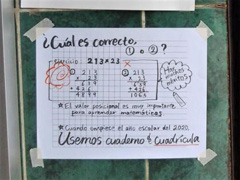 ¿Cuál es correcto,
① o ② ?
EJERCICIO: 213×23 ×
① 213 ② 213
× 23 × 23
El valor posicional es muy importante
para aprender matemáticas
Cuando empiece el año escolar del 2020,
Usemos cuaderno de cuadrícula